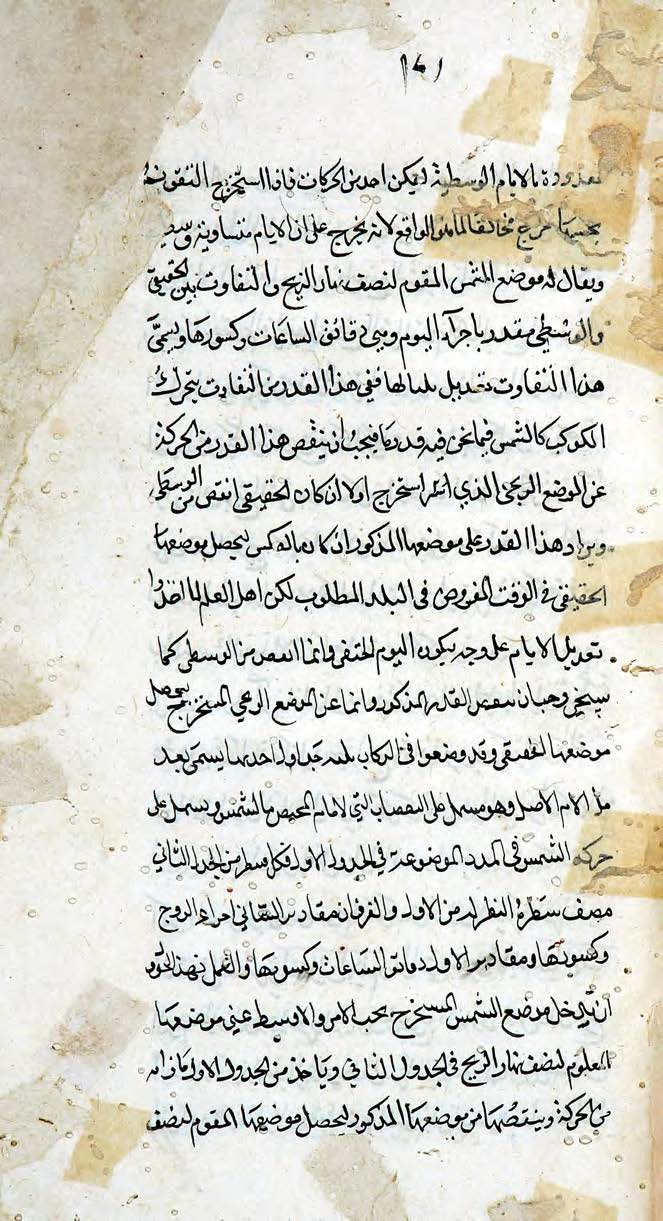 ١٧١
بالايام الوسطية ليكن احد من الحركات فاذا استخرج التقويم
بحسبها خرج مخالفا لما في الواقع لانه يخرج على ان الايام متساوية
ويقال له موضع الشمس المقوم لنصف نهار الزيج والتفاوت بين الحقيقي
والوسطي مقدر باجزآء اليوم وهي دقائق الساعات وكسورها ويسمى
هذا التفاوت تعديل بلياليها ففي هذا القدر من التفاوت يتحرك
الكوكب كالشمس فيما نحن فيه قدر ما فيجب ان ينقص هذا القدر من الحركة
عن الموضع الزيجي الذي استخرج اولا ان كان الحقيقي انقص من الوسطى
ويزاد هذا القدر على موضعها المذكور ان كان بالعكس ليحصل موضعها
الحقيقي في الوقت المفروض في البلد المطلوب لكن اهل العلم لما اخذوا
تعديل الايام على وجه يكون اليوم الحقيقي دائما انقص من الوسطى كما
سيجي وجب ان ينقص القدر المذكور دائما عن الموضع المستخرج ليحصل
موضعها الحقيقي وقد وضعوا في الكتاب جداول احدها يسمى بعد
الايام الاصل وهو مشتمل على التي لايام بالشمس ويشتمل على
حركة الشمس في المدد الموضوعة في الجدول الاول فكل سطر من الجدول الثاني
نصف سطره النظير له من الاول والفرق ان مقادير الثاني اجزاء البروج
وكسورها ومقادير الاول دقائق الساعات وكسورها والعمل بهذا الجدول
ان يدخل موضع الشمس المستخرج بحسب الامر الاوسط عني موضعها
المعلوم لنصف نهار الزيج في الجدول الثاني وياخذ من الجدول الاول ما زاه
من الحركة وينقصها من موضعها المذكور ليحصل موضعها المقوم لنصف